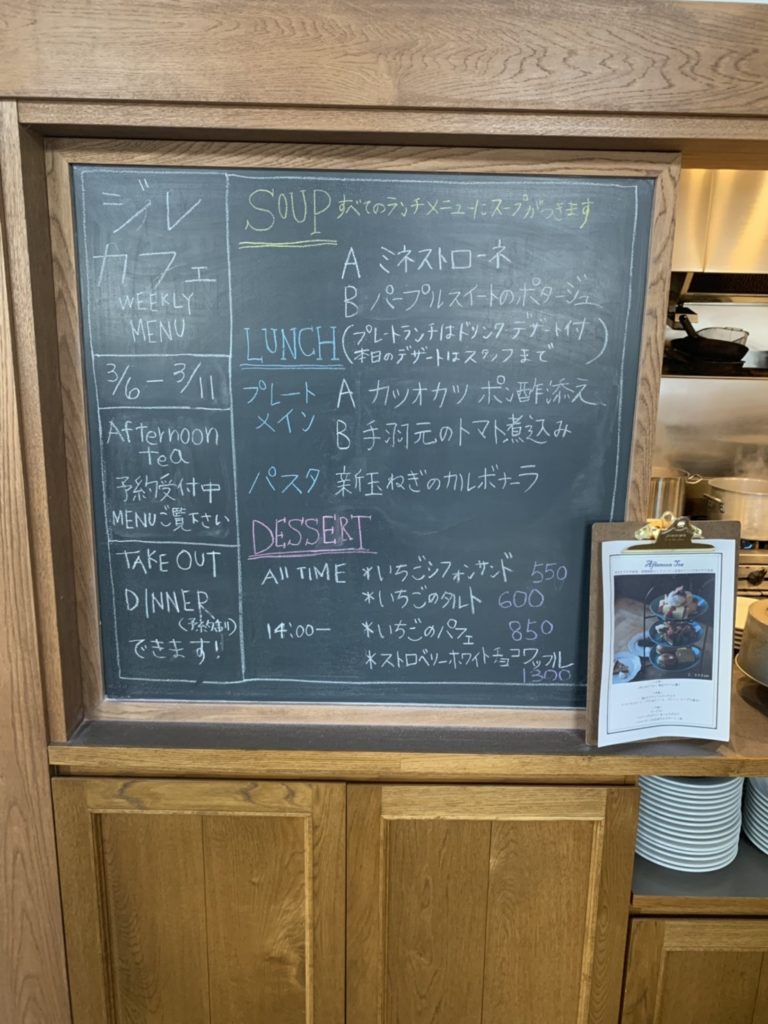 ジレ
カフェ
WEEKLY
MENU
3/6 - 3/11
Afternoon
tea
予約受付中
MENUご覧下さい
TAKE OUT
DINNER
できます!
SOUP すべてのランチメニューにスープがつきます
A ミネストローネ
B パープルスイートのポタージュ
LUNCH (プレートランチはドリンク・デザート付
本日のデザートはスタッフまで)
プレート
メイン
A カツオカツ ポン酢添え
B 手羽元のトマト煮込み
パスタ 新玉ねぎのカルボナーラ
DESSERT
All TIME *いちごシフォンサンド 550
*いちごのタルト 600
14:00− *いちごのパフェ 850
*ストロベリーホワイトチョコワッフル
1300
Afternoon Tea